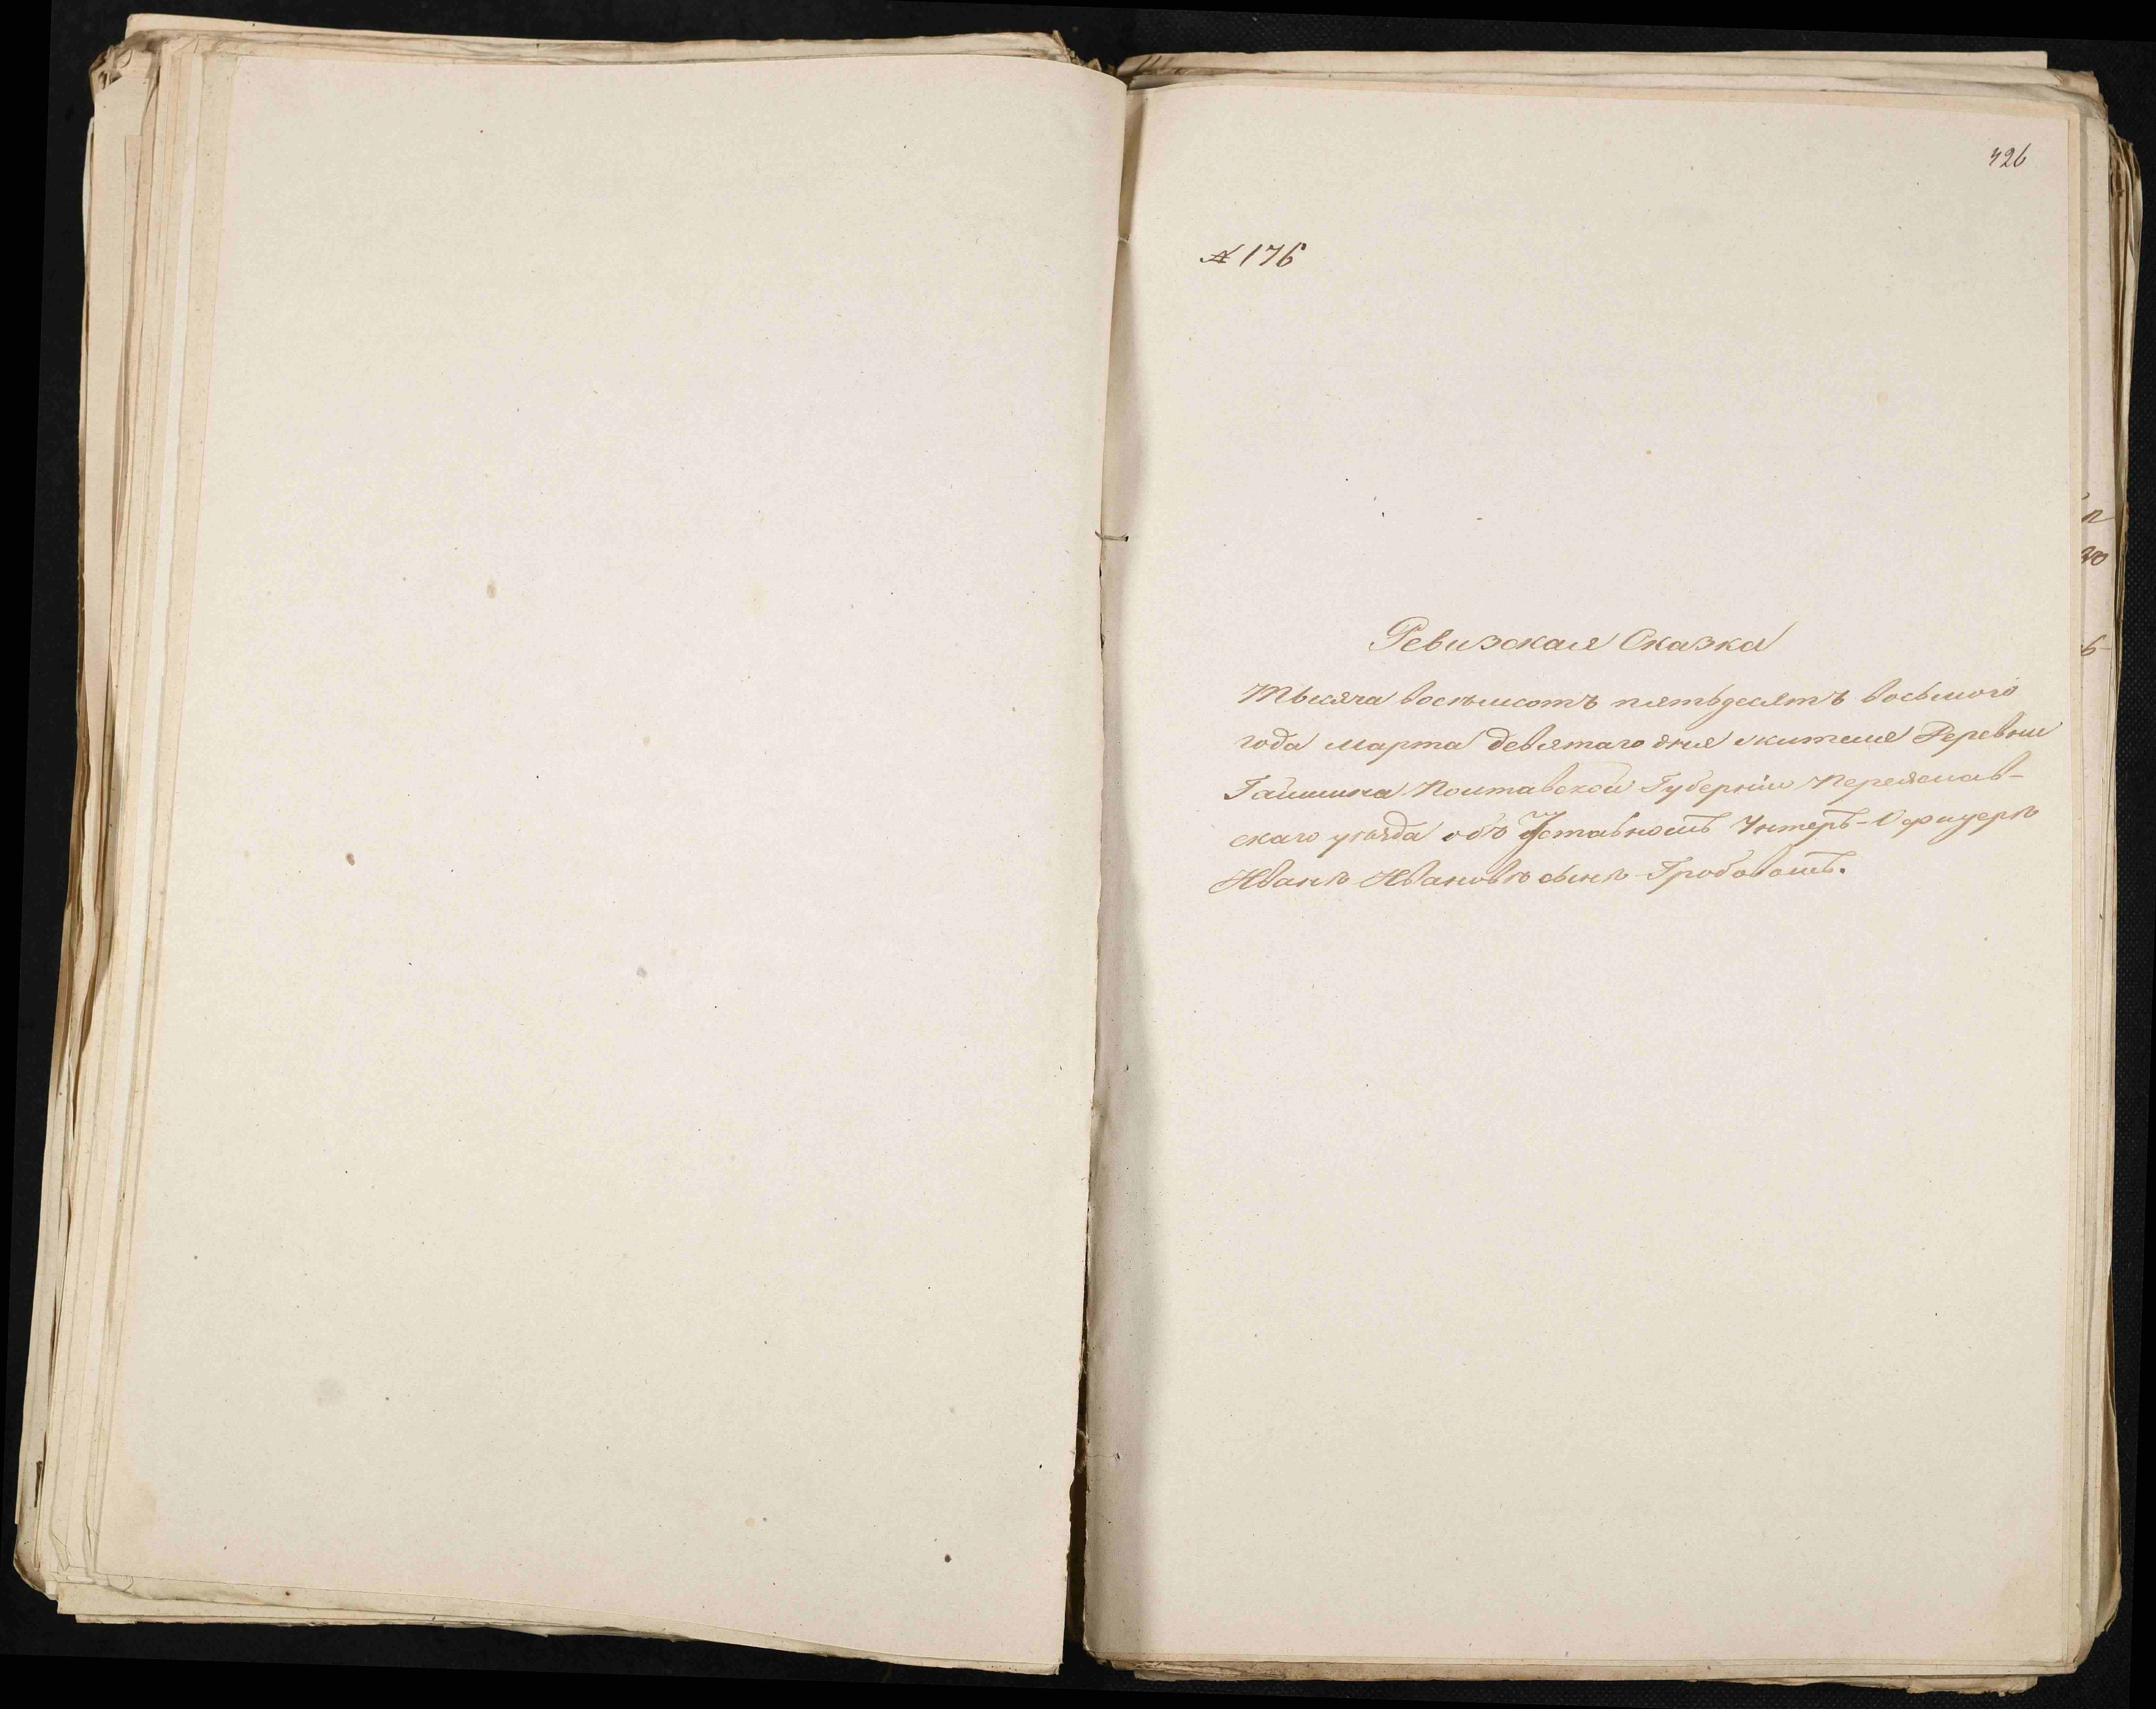 426
№ 176
Ревизская Сказка
Тысяча восемьсотъ пятьдесятъ восьмого
года марта девятаго дня жителя Деревни
Гайшина Полтавской Губерніи Переяслав-
скаго уѣзда объ Отставномъ Унтеръ-Офицерѣ
Иванѣ Ивановѣ сынѣ Гробовомъ.